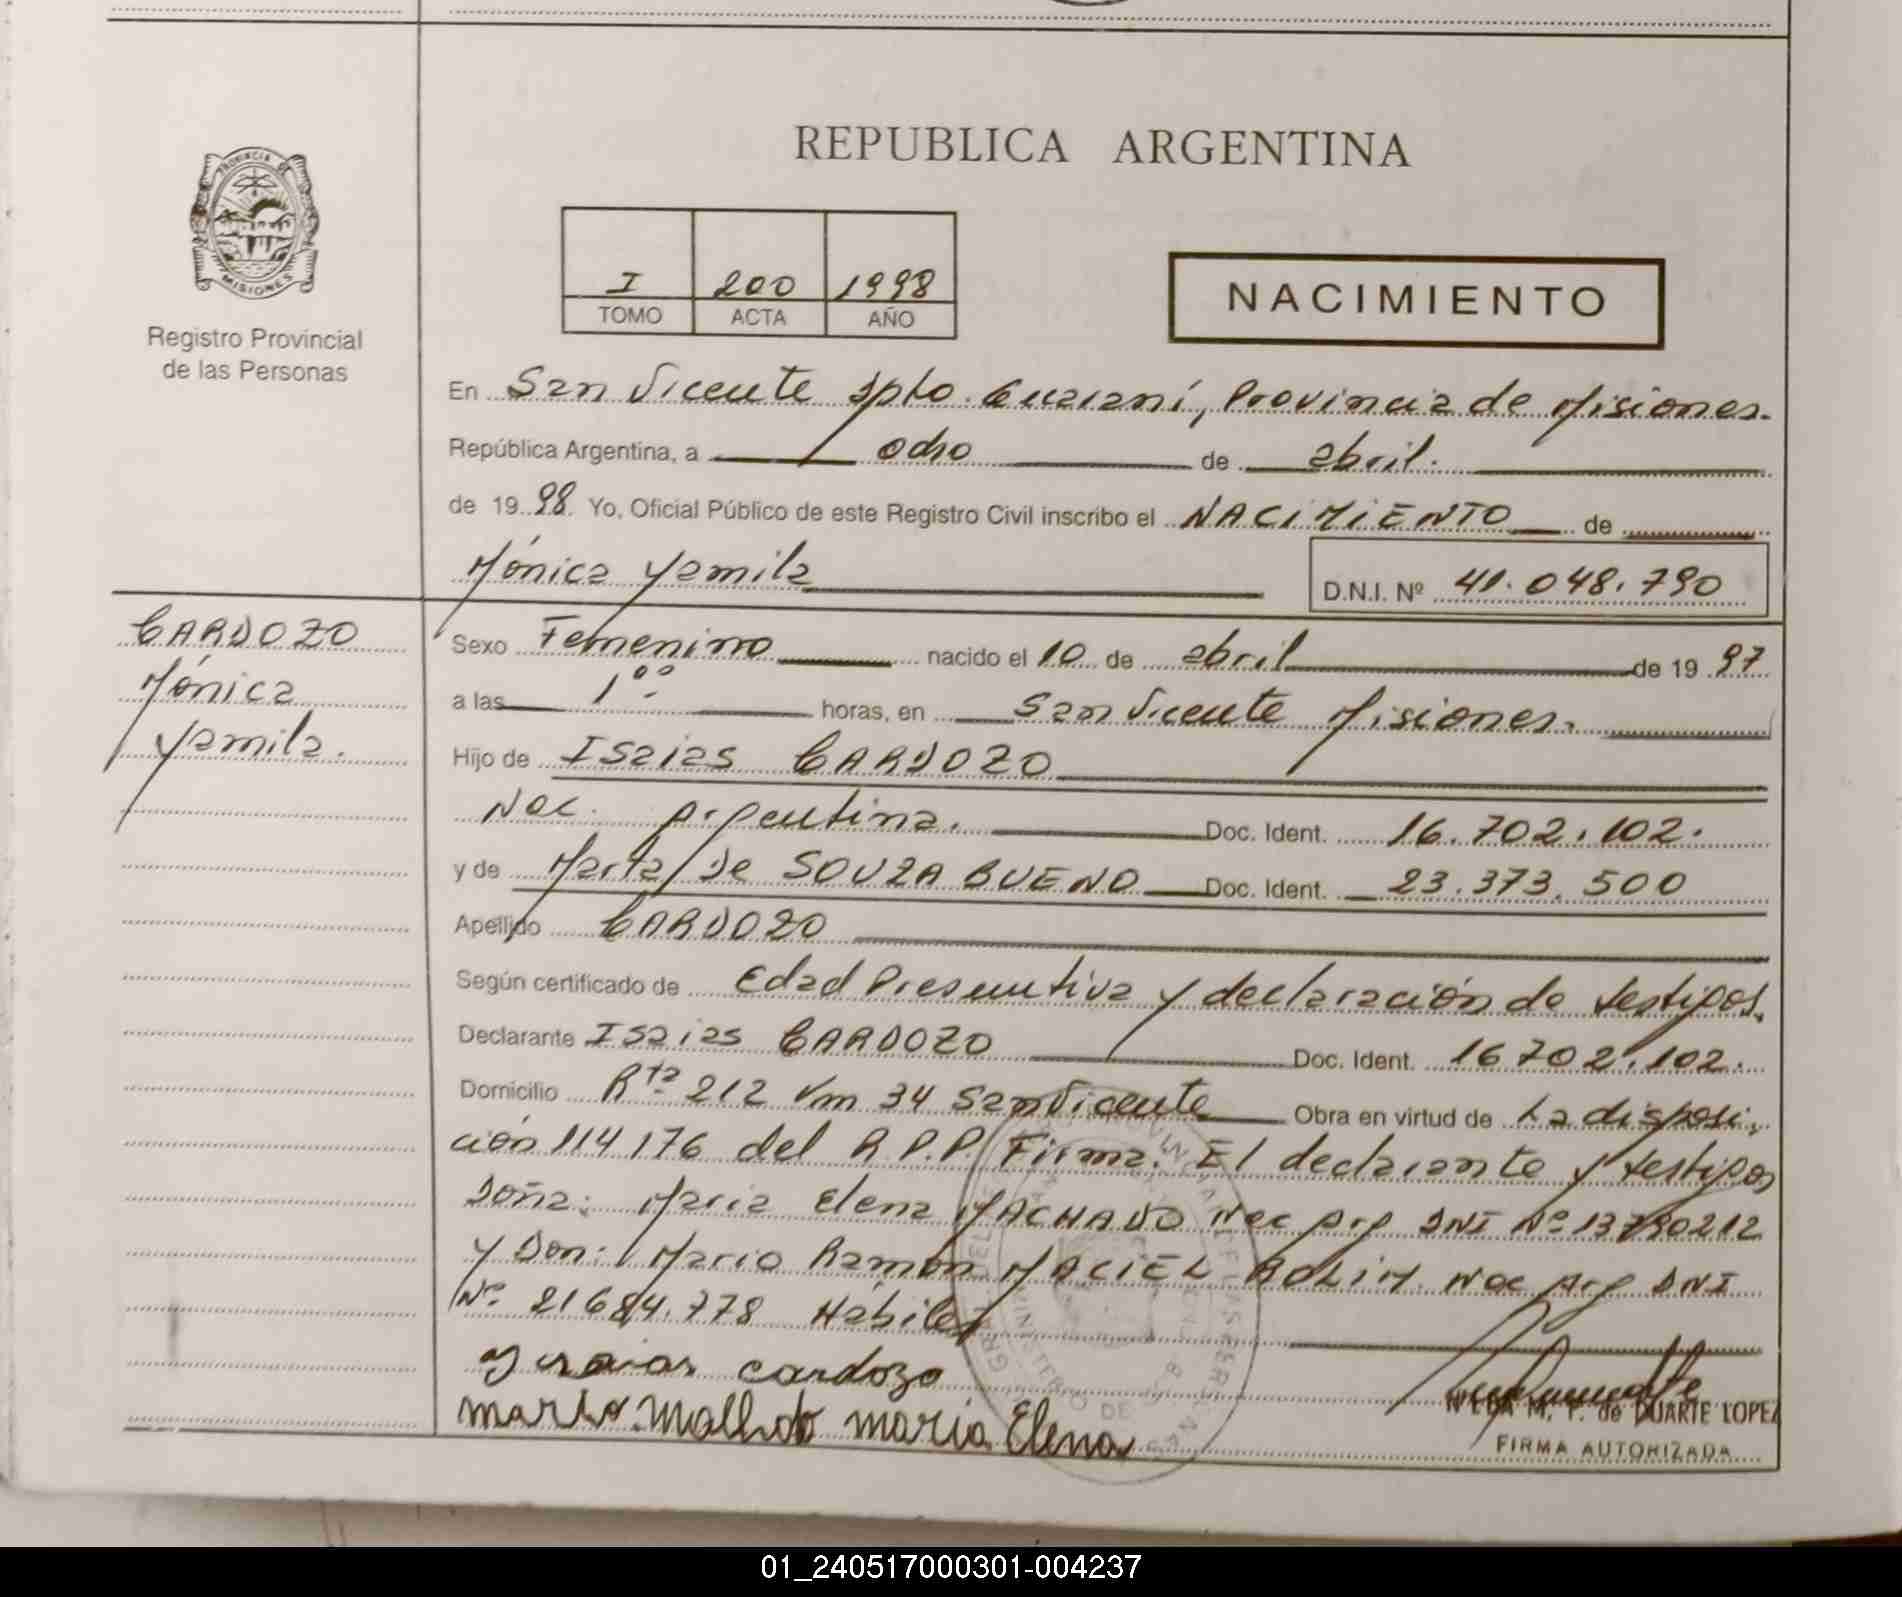 REPUBLICA ARGENTINA
PROVINCIA DE
MISIONES
Registro Provincial
de las Personas
I 200 1998
TOMO ACTA AÑO
NACIMIENTO
En San Vicente Dpto. Guaraní, Provincia de Misiones.
República Argentina, a ocho de abril.
de 19 98 Yo, Oficial Público de este Registro Civil inscribo el NACIMIENTO de
Mónica Yamila D.N.I. Nº 41.048.790
CARDOZO
Mónica
Yamila.
Sexo Femenino nacido el 10 de abril de 19 97
a las 1°° horas, en San Vicente Misiones.
Hijo de Isaias CARDOZO
Nac. Argentina. Doc. Ident. 16.702.102.
y de Marta De SOUZA BUENO Doc. Ident. 23.373.500
Apellido CARDOZO
Según certificado de Edad Presuntiva y declaración de testigos.
Declarante Isaias CARDOZO Doc. Ident. 16702.102.
Domicilio Rta 212 Km 34 San Vicente Obra en virtud de La disposi.
ción 114176 del R.P.P. Firma. El declarante y testigos
Doña: Maria Elena MACHADO Nac Arg DNI Nº 13790212
y Don: Mario Ramón MACIEL ROLIM. Nac Arg DNI
Nº 21684.778 Hábiles
Isaias cardozo
maria Elena
DUARTE LOPEZ
FIRMA AUTORIZADA
01_240517000301-004237